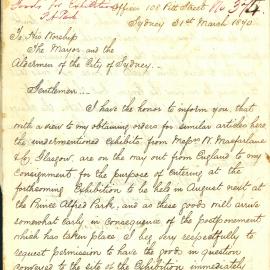 Goods for Exhibition
P. A. Park
Office 108 Pitt Street No 374
Sydney 31st March 1870
To His Worship
The Mayor and the
Aldermen of the City of Sydney.
Gentlemen
I have the honor to inform you, that
with a view to my obtaining orders for similar articles here
the undermentioned Exhibits from Messrs W. Macfarlane
& Co, Glasgow, are on the way out from England to my
Consignment for the purpose of entering at the
forthcoming Exhibition to be held in August next at
the Prince Alfred Park, and as these goods will arrive
somewhat Early in consequence of the postponement
which has taken place I beg very respectfully to
request permission to have the goods in question
conveyed to the site of the Exhibition immediately